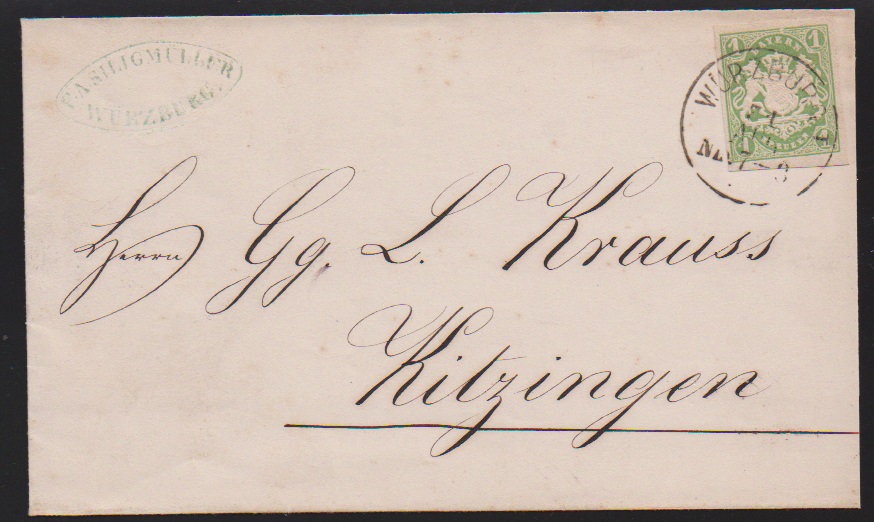 BASILIGMÜLLER
WÜRZBURG.
1 BAYERN 1
WÜRZBURG
Herrn Gg. L. Krauss
Kitzingen